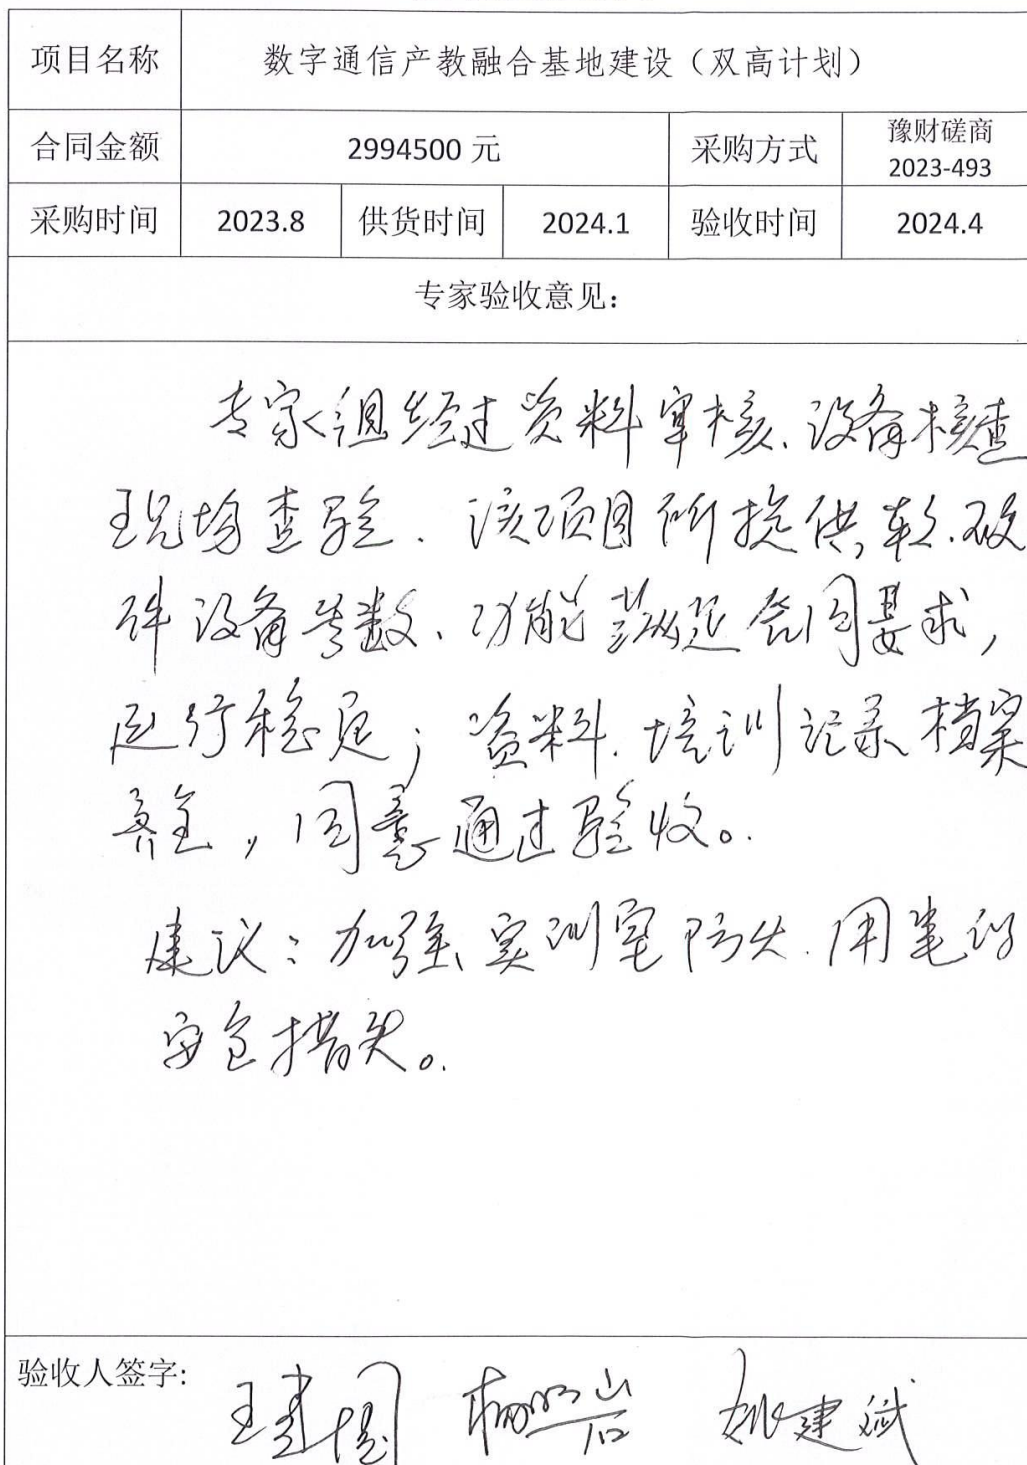 项目名称 数字通信产教融合基地建设（双高计划）
合同金额 2994500 元 采购方式 豫财磋商
2023-493
采购时间 2023.8 供货时间 2024.1 验收时间 2024.4
专家验收意见：
专家组经过资料审核、设备核查
现场查验、该项目所提供软、硬
件设备参数、功能满足合同要求，
运行稳定；资料、培训记录档案
齐全，同意通过验收。
建议：加强实训室防火、用电的
安全措施。
验收人签字: 王建国 姚建斌